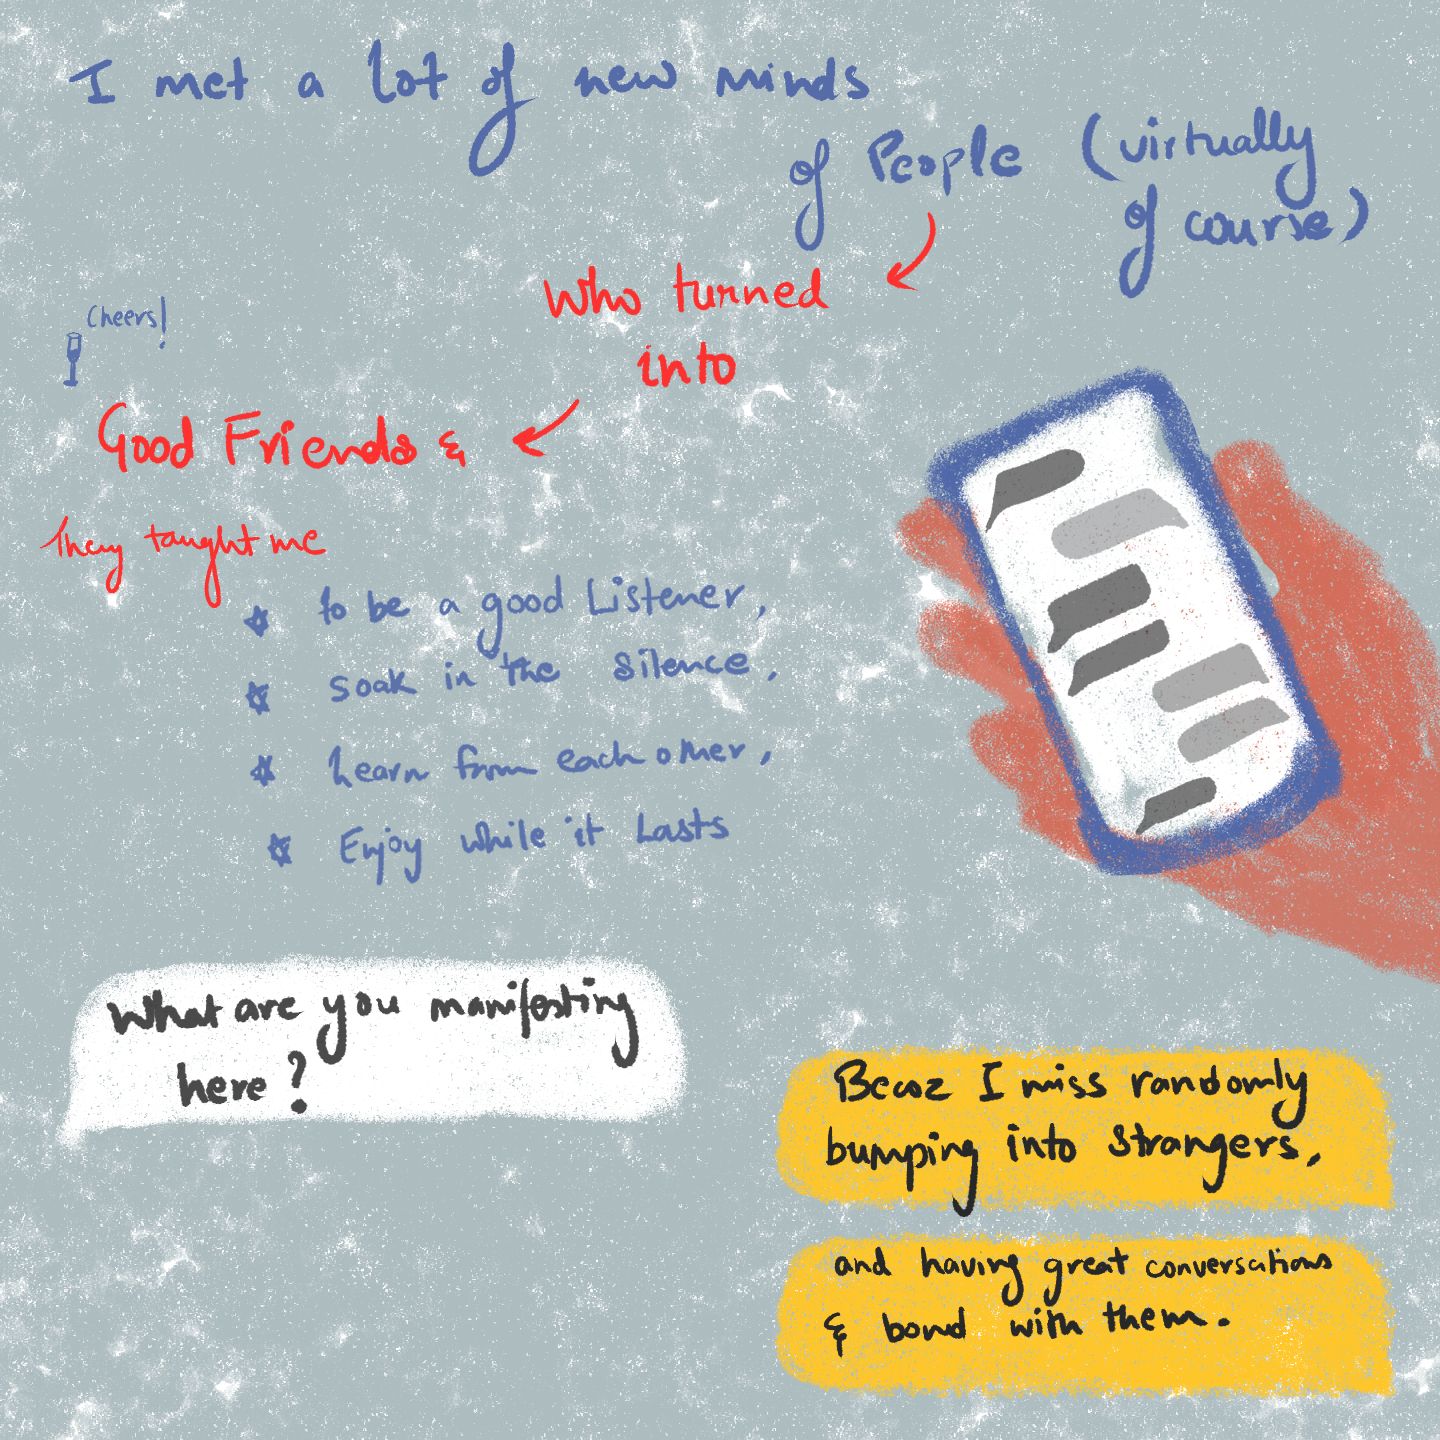 I met a lot of new minds
of People (virtually
of course)
Who turned
into
Cheers!
Good Friends &
They taught me
to be a good Listener,
soak in the silence,
learn from each other,
Enjoy while it Lasts
What are you manifesting
here?
Becoz I miss randomly
bumping into strangers,
and having great conversations
& bond with them.